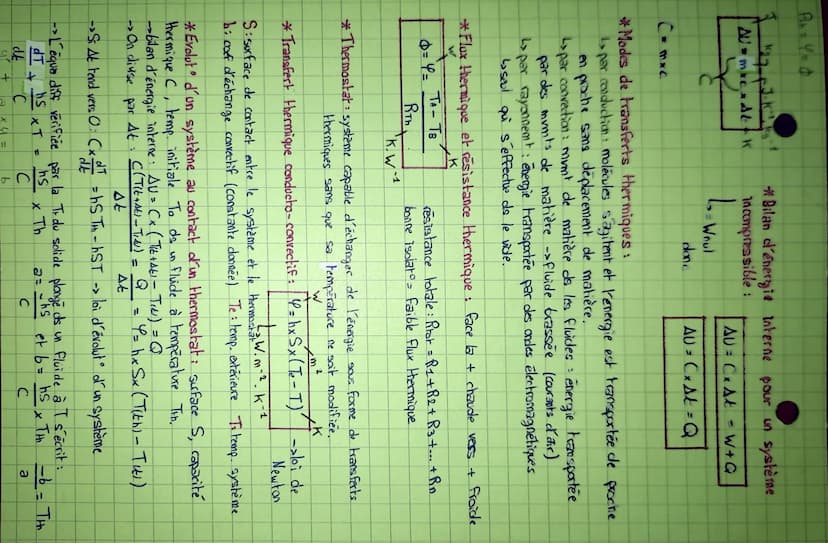 * Bilan d'énergie interne pour un système
incompressible :
ΔU = m×c×Δt
J kg J.K⁻¹.kg⁻¹ K
C
ΔU = C×Δt = W+Q
↳ = W nul
donc
ΔU = C×Δt = Q
C = m×c
* Modes de transferts thermiques :
↳ par conduction : molécules s'agitent et l'énergie est transportée de proche
en proche sans déplacement de matière.
↳ par convection : mvmt de matière ds les fluides : énergie transportée
par des mvmts de matière → fluide brassée (courants d'air)
↳ par rayonnement : énergie transportée par des ondes électromagnétiques
↳ seul qui s'effectue ds le vide.
* Flux thermique et résistance thermique : face la + chaude vers + froide
W K
Φ = φ = (TA - TB)/RTh
K.W⁻¹
résistance totale : RTht = R1 + R2 + R3 + ... + Rn
bonne isolat° = faible flux thermique
* Thermostat : système capable d'échanger de l'énergie sous forme de transferts
thermiques sans que sa température ne soit modifiée.
* Transfert thermique conducto-convectif : φ = h×S×(Te - T) → loi de
Newton
W m² K
↳ W.m⁻².K⁻¹
S : surface de contact entre le système et le thermostat
h : coef d'échange convectif (constante donnée) Te : temp. extérieure T : temp. système
* Evolut° d'un système au contact d'un thermostat : surface S, capacité
thermique C, temp. initiale T0 ds un fluide à température Th.
→ bilan d'énergie interne : ΔU = C×(T(t+Δt) - T(t)) = Q
→ On divise par Δt : C(T(t+Δt) - T(t))/Δt = Q/Δt = φ = h×S×(T(th) - T(t))
→ S Δt tend vers 0 : C×dT/dt = hSTh - hST → loi d'évolut° d'un système
→ L'équa diff vérifiée par la T° du solide plongé ds un fluide à T s'écrit :
dT/dt + hS/C × T = hS/C × Th a = -hS/C et b = hS/C × Th -b/a = Th